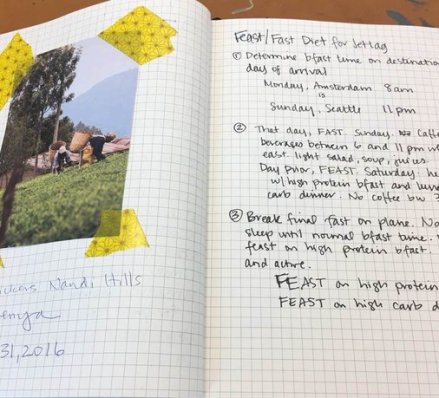 Nandi Hills
31, 2016
Feast/Fast Diet for Jetlag
① Determine bfast time on destination
day of arrival
Monday, Amsterdam 8am
is
Sunday, Seattle 11pm
② That day, FAST. Sunday. No
beverages between 6 and 11 pm
east. light salad, soup, juices.
Day Prior, FEAST. Saturday.
w/high protein bfast and
carb dinner. No coffee bw 3
③ Break final fast on plane. No
sleep until normal bfast time.
feast on high protein bfast.
and active.
FEAST on high protein
FEAST on high carb d